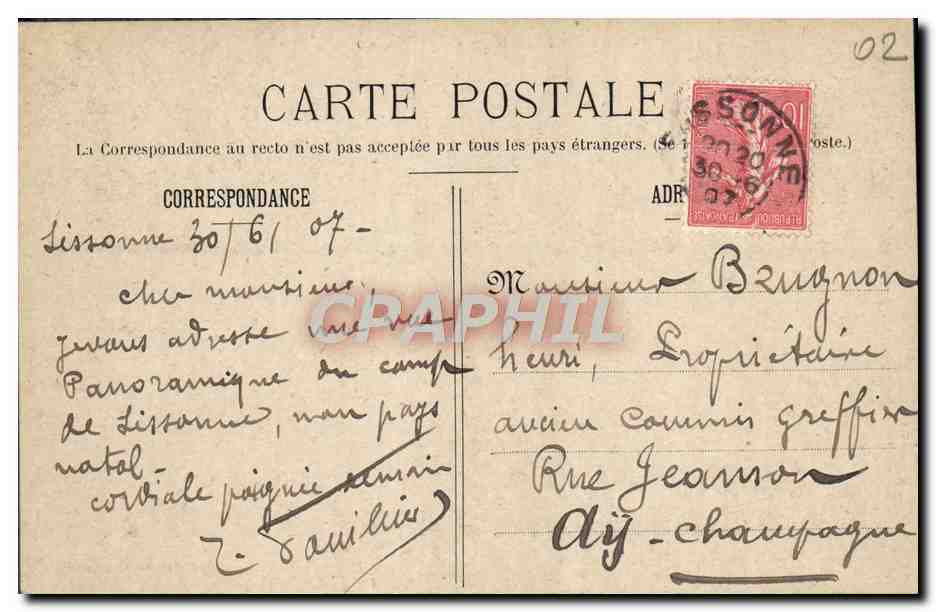 02
CARTE POSTALE
La Correspondance au recto n'est pas acceptée par tous les pays étrangers. (Se oste.)
CORRESPONDANCE
Sissonne 30/6/07-
cher monsieur,
je vous adresse une vue
Panoramique du camp
de Sissonne, mon pays
natal-
cordiale poignée de main
ADR
SISSONNE
20 20
30 -6
07
10
REPUBLIQUE FRANÇAISE
Monsieur Brugnon
henri, Propriétaire
ancien commis greffier
Rue Jeanson
Aÿ-champagne
CPAPHIL